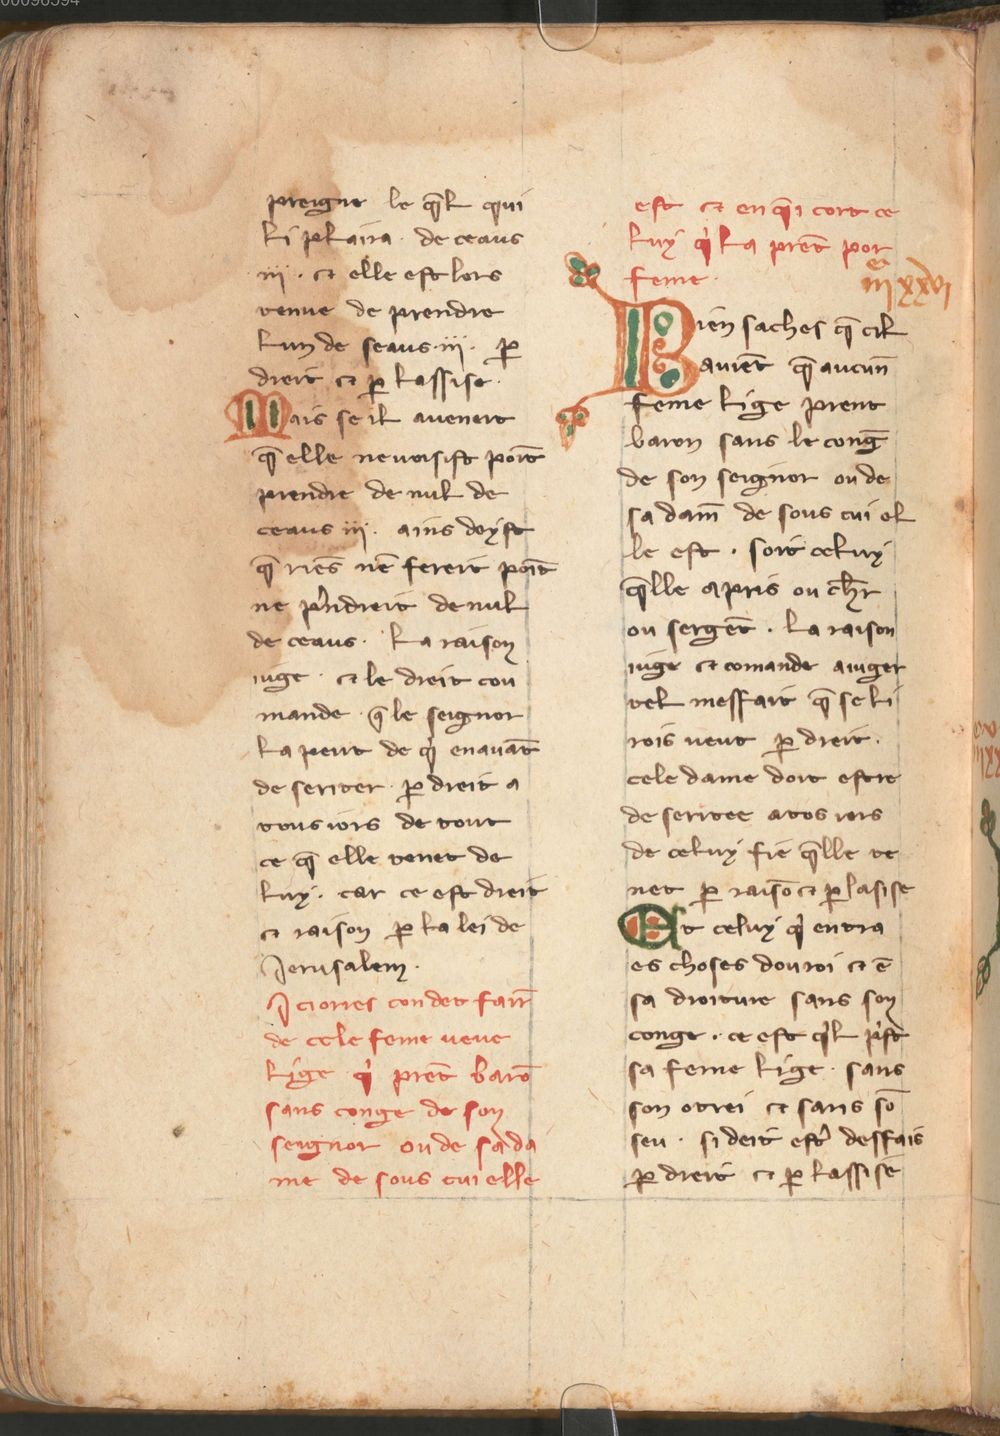 00096594
preigne le q̄l qui
li plaira. de ceaus
.iii. et elle est lors
tenue de prendre
lun de seaus .iii. p̲
dreit et p̲ lassise.
Mais se il avenoit
q̄ elle nevosist point
prendre de nul de
ceaus .iii. ains deyst
q̄ riēs nē fereit point
ne p̓ndreit de nul
de ceaus. La raison
iuge et le dreit cou
mande q̄ le seignor
la peut de q̓ en auāt
deseriter p̲ dreit a
tous iors de tout
ce q̄ elle tenet de
luy. car ce est dreit
et raison p̲ la lei de
Jerusalem.
Ici ores con det faire
de cele feme veve
lige q̓ prēt barō
sans conge de son
seignor ou de sa da
me de sous cui elle
est et en q̄i tort ce
luy q̓ la prēt por
feme.
.iii. xxvi
Bien saches q̄ cil
avient q̄ aucun̄
feme lige prent
baron sans le conḡ
de son seignor ou de
sa dam̄ de sous cui el
le est. soit celuy
q̄lle a pris ou ch̄r
ou sergēt. La raison
iuge et comande a iuger
tel meffait q̄ se li
rois veut p̲ dreit.
cele dame doit estre
deseritee a tos iors
de celuy fie q̄lle te
net p̲ raisō et p̲ lasise
Et celuy q̓ entra
es choses dou roi et ē
sa droiture sans son
conge. ce est q̓l p̓st
sa feme lige sans
son otrei et sans sō
seu. si deit est̓ desfais
p̲ dreit et p̲ lassise